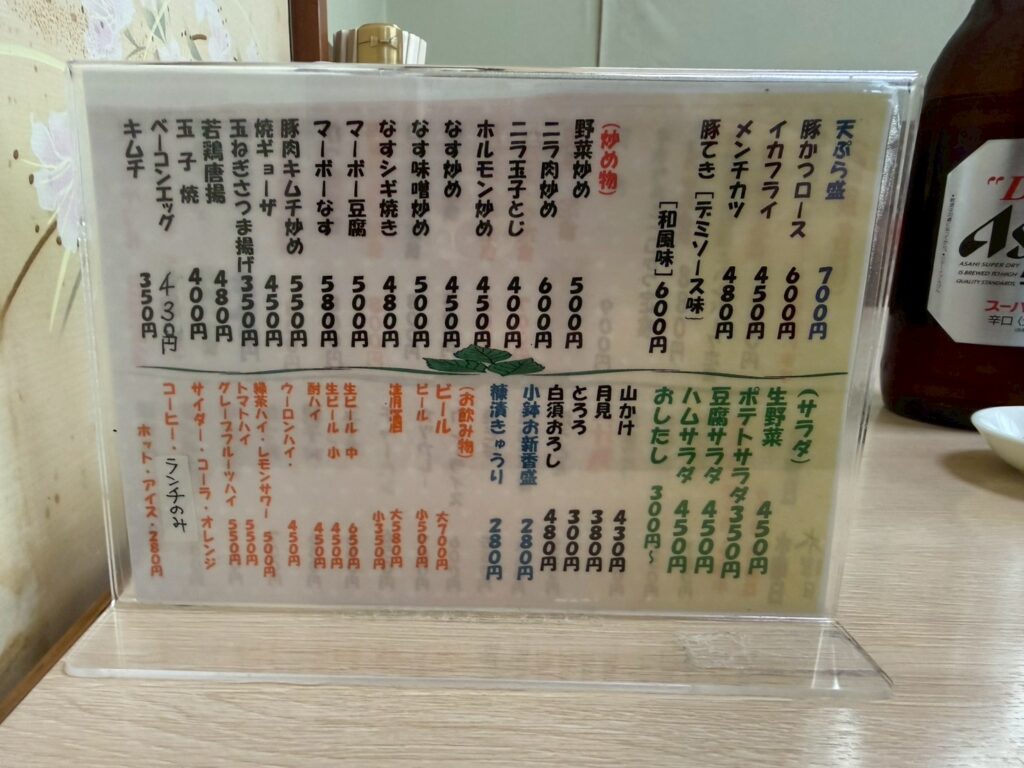 天ぷら盛 700円
豚かつロース 600円
イカフライ 450円
メンチカツ 480円
豚てき [デミソース味]
[和風味] 600円
(炒め物)
野菜炒め 500円
ニラ肉炒め 600円
ニラ玉子とじ 400円
ホルモン炒め 450円
なす炒め 450円
なす味噌炒め 500円
なすシギ焼き 480円
マーボー豆腐 500円
マーボーなす 580円
豚肉キムチ炒め 550円
焼ギョーザ 450円
玉ねぎさつま揚げ 350円
若鶏唐揚 480円
玉子焼 400円
ベーコンエッグ 430円
キムチ 350円
(サラダ)
生野菜 450円
ポテトサラダ 350円
豆腐サラダ 450円
ハムサラダ 450円
おしたし 300円〜
山かけ 430円
月見 380円
とろろ 300円
白須おろし 480円
小鉢お新香盛 280円
糠漬きゅうり 280円
(お飲み物)
ビール 大700円
ビール 小500円
清酒 大580円
小350円
生ビール 中 650円
生ビール 小 450円
酎ハイ 450円
ウーロンハイ・ 450円
緑茶ハイ・レモンサワー 500円
トマトハイ 550円
グレープフルーツハイ 550円
サイダー・コーラ・オレンジ
コーヒー・ランチのみ
ホット・アイス・280円
ASAHI SUPER DRY
スーパ
辛口